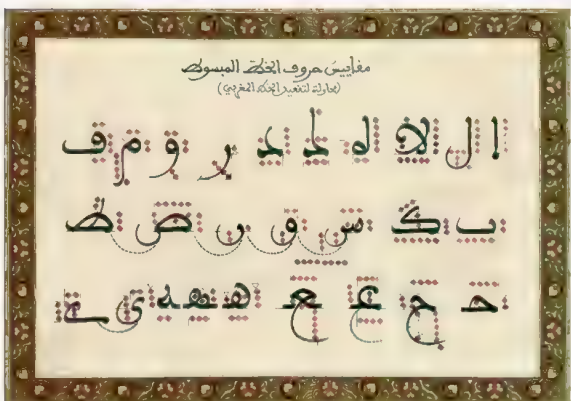 مقاييس حروف الخط المبسوط
(محاولة لتقعيد الخط المغربي)
ا ل لا لد د د ر و م ف
ب ك س ق ن ض ط
ح ح ع ع ه ه ه ي ے